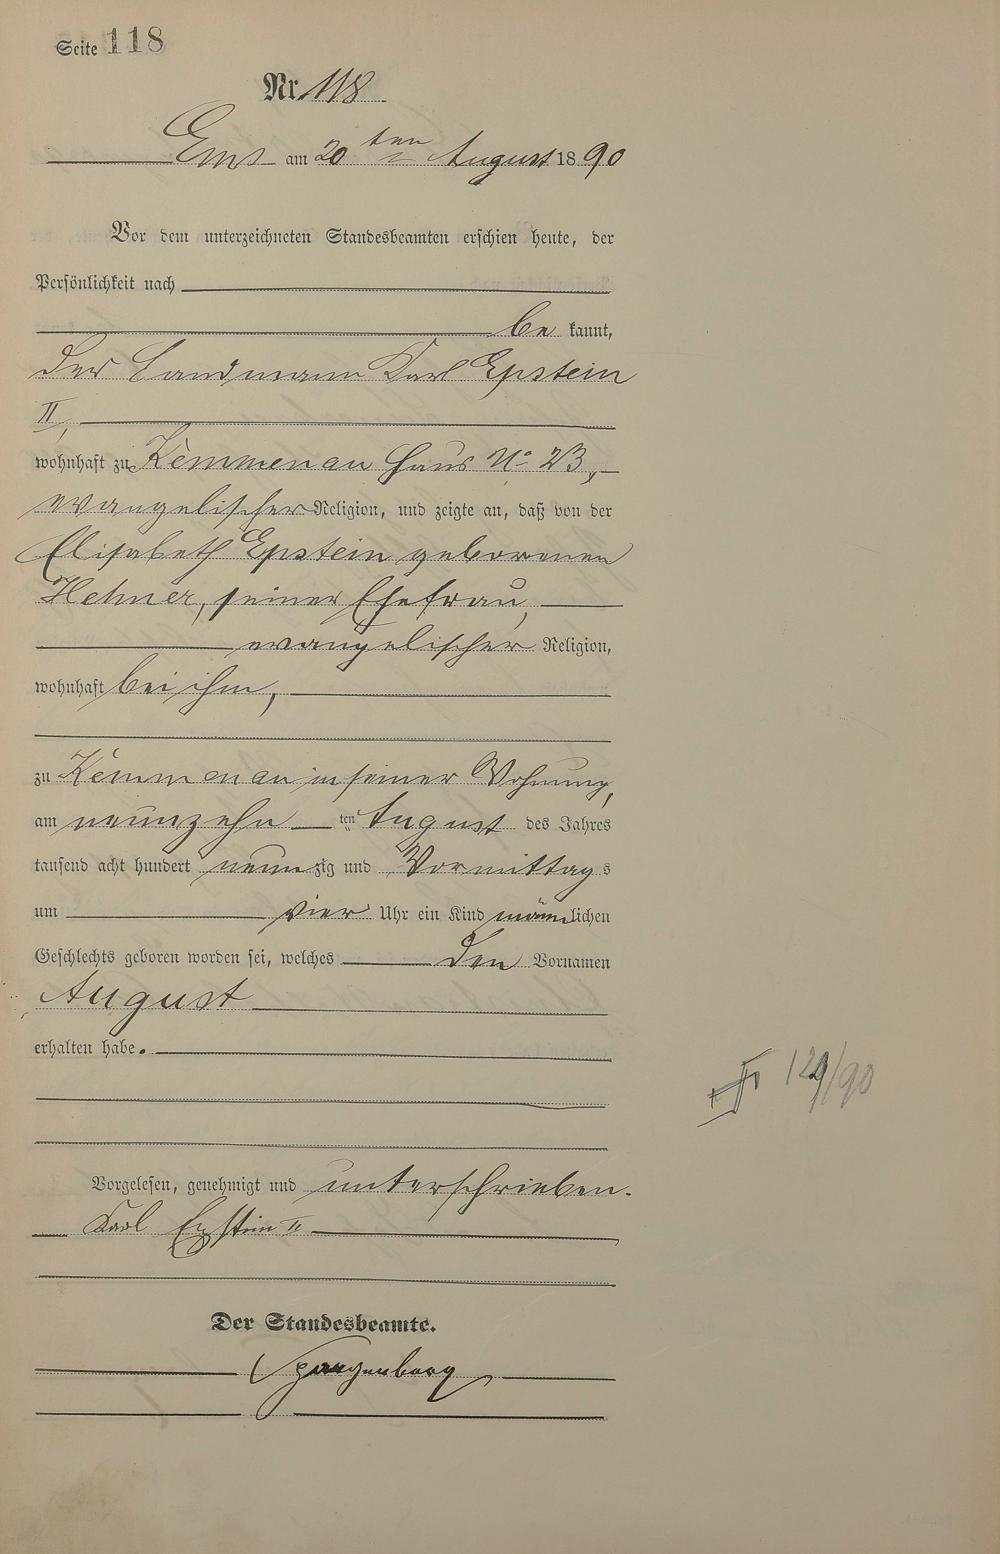 Seite 118
Nr. 118
Ems am 20ten August 1890
Vor dem unterzeichneten Standesbeamten erschien heute, der
Persönlichkeit nach
be kannt,
der Landmann Karl Epstein
II,
wohnhaft zu Kemmenau Haus No 23,
evangelischer Religion, und zeigte an, daß von der
Elisabeth Epstein geborenen
Hehner, seiner Ehefrau,
evangelischer Religion,
wohnhaft bei ihm,
zu Kemmenau in seiner Wohnung,
am neunzehn ten August des Jahres
tausend acht hundert neunzig und Vormittags
um vier Uhr ein Kind männlichen
Geschlechts geboren worden sei, welches den Vornamen
August
erhalten habe.
129/90
Vorgelesen, genehmigt und unterschrieben.
Karl Epstein II
Der Standesbeamte.
Spangenberg